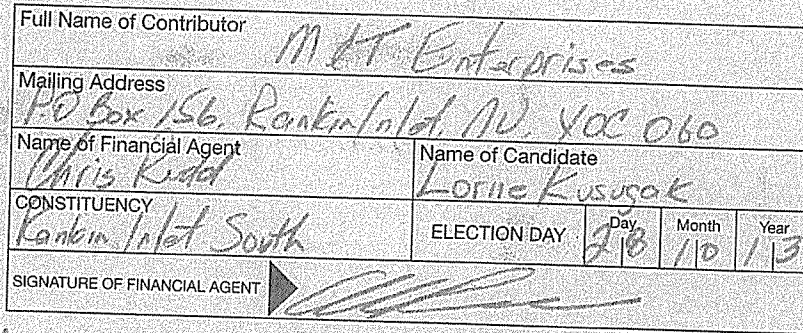 Full Name of Contributor
M & T Enterprises
Mailing Address
P.O Box 156, Rankin Inlet, NU. XOC 0G0
Name of Financial Agent
Chris Kidd
Name of Candidate
Lorne Kusugak
CONSTITUENCY
Rankin Inlet South
ELECTION DAY
Day Month Year
28 10 13
SIGNATURE OF FINANCIAL AGENT